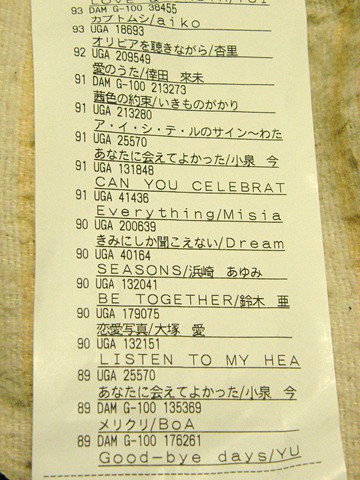 93 DAM G-100 38455
カブトムシ/aiko
93 UGA 18693
オリビアを聴きながら/杏里
92 UGA 209549
愛のうた/倖田 來未
91 DAM G-100 213273
茜色の約束/いきものがかり
91 UGA 213280
ア・イ・シ・テ・ルのサイン~わた
91 UGA 25570
あなたに会えてよかった/小泉 今
91 UGA 131848
CAN YOU CELEBRAT
91 UGA 41436
Everything/Misia
90 UGA 200639
きみにしか聞こえない/Dream
90 UGA 40164
SEASONS/浜崎 あゆみ
90 UGA 132041
BE TOGETHER/鈴木 亜
90 UGA 179075
恋愛写真/大塚 愛
90 UGA 132151
LISTEN TO MY HEA
89 UGA 25570
あなたに会えてよかった/小泉 今
89 DAM G-100 135369
メリクリ/BoA
89 DAM G-100 176261
Good-bye days/YU